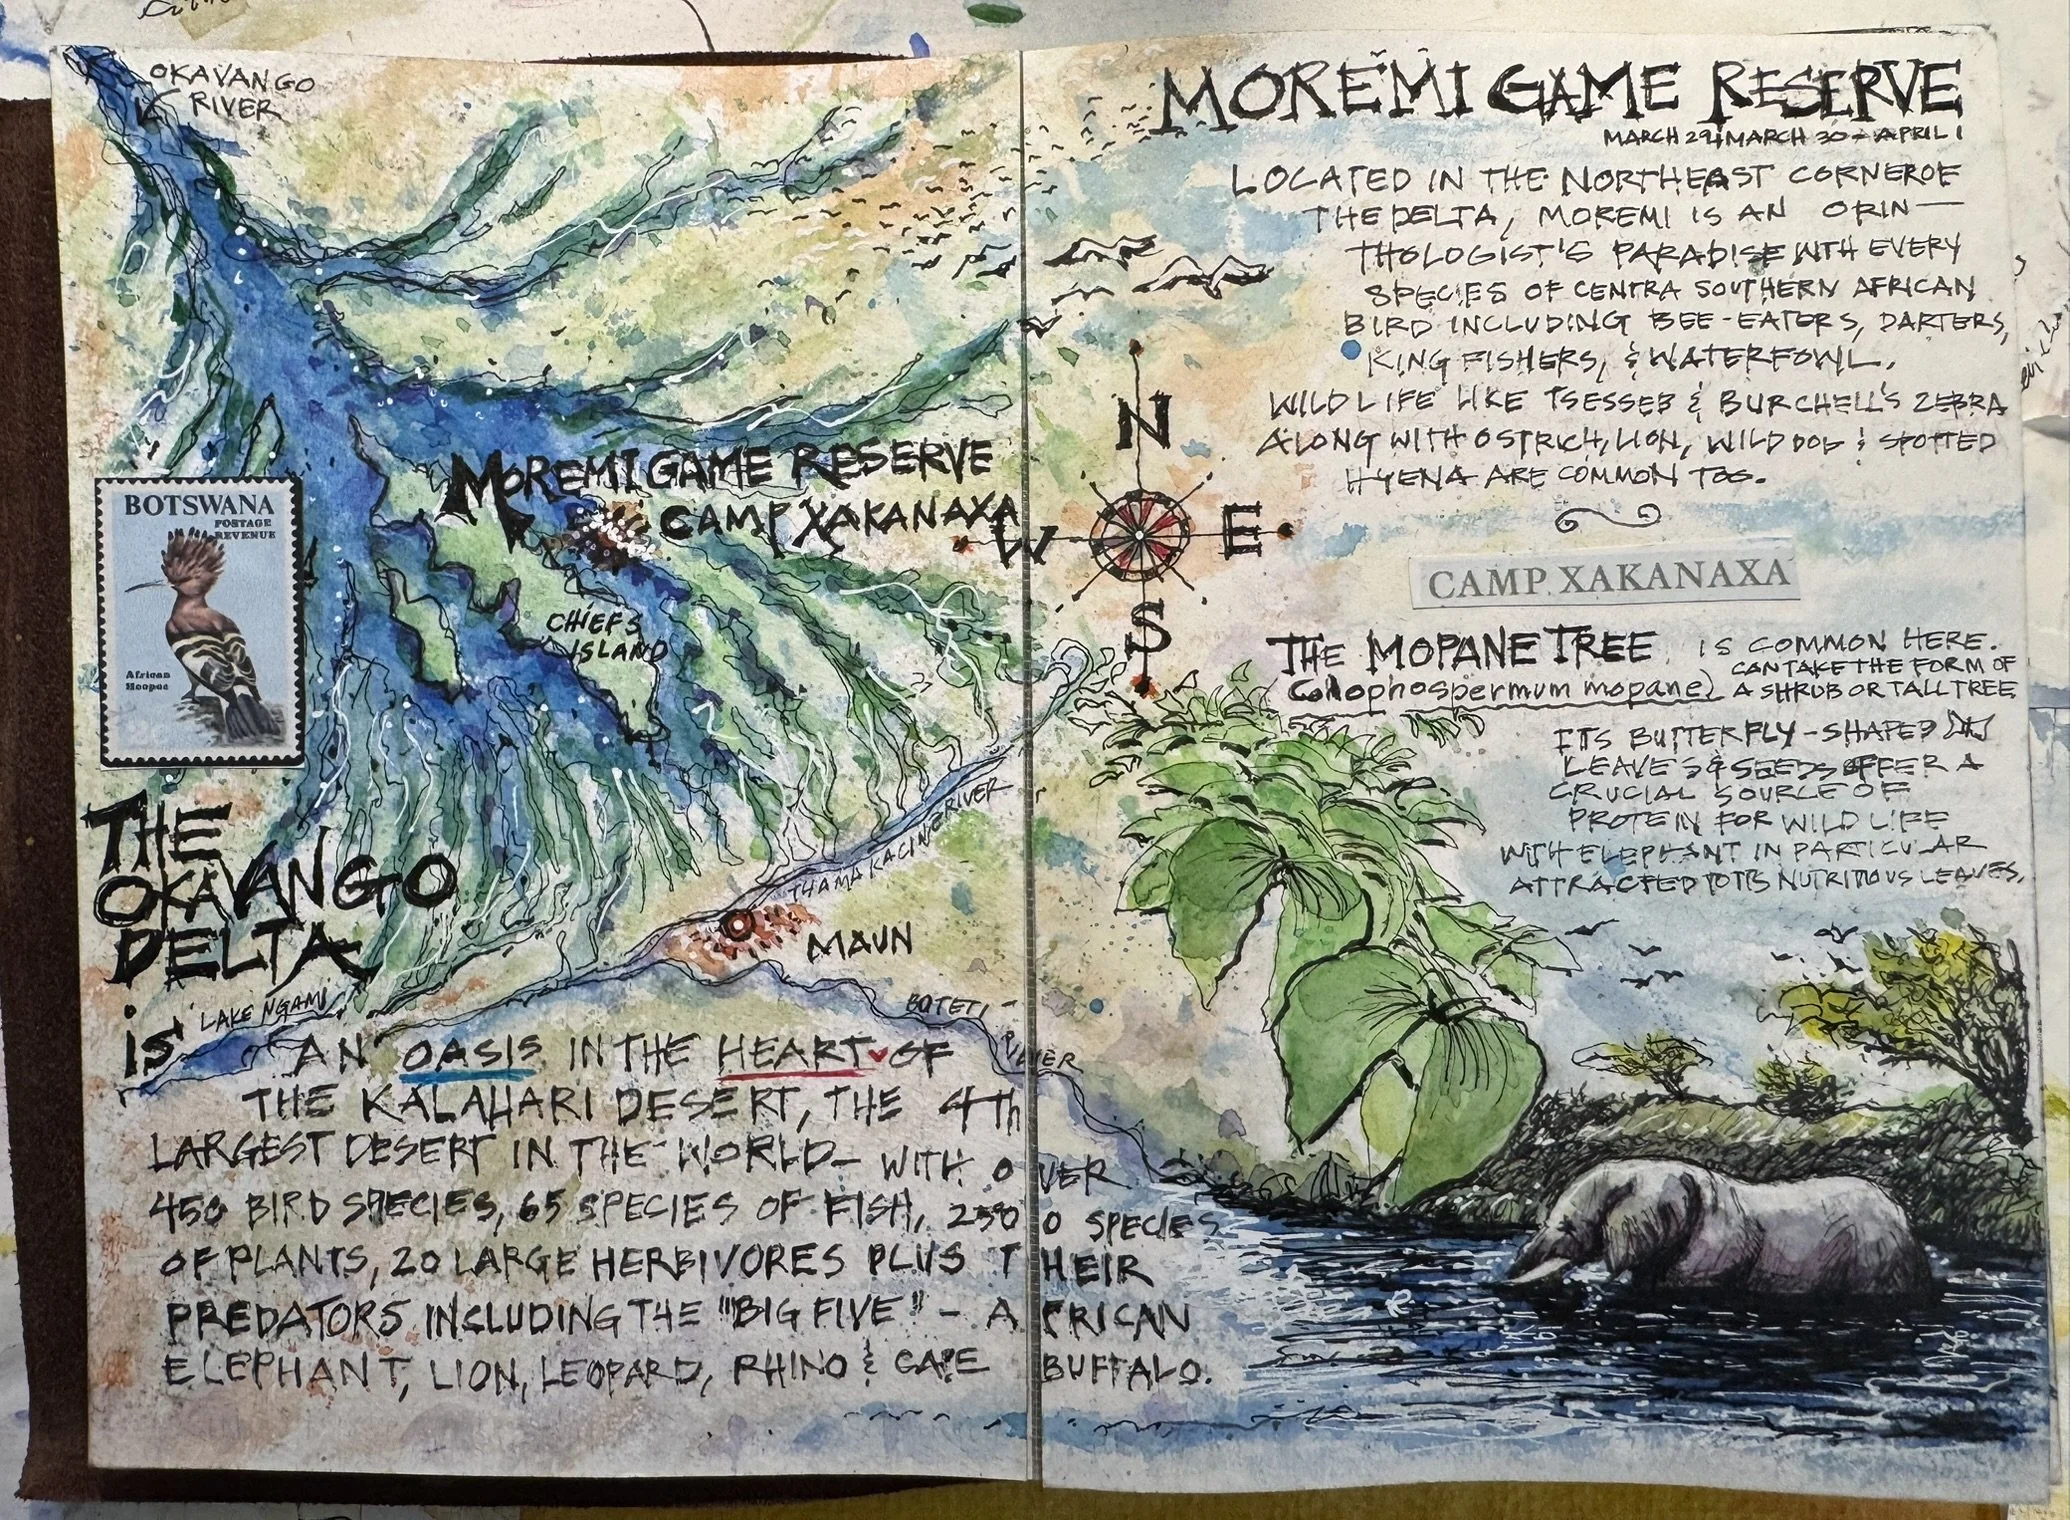 OKAVANGO
RIVER
MOREMI GAME RESERVE
CAMP XAKANAXA
BOTSWANA
POSTAGE
REVENUE
African
Hoopoe
CHIEFS
ISLAND
THE
OKAVANGO
DELTA
is
RIVER
MAUN
LAKE NGAMI
BOTETI-
RIVER
AN OASIS IN THE HEART OF
THE KALAHARI DESERT, THE 4Th
LARGEST DESERT IN THE WORLD - WITH OVER
450 BIRD SPECIES, 65 SPECIES OF FISH, 2500 SPECIES
OF PLANTS, 20 LARGE HERBIVORES PLUS THEIR
PREDATORS INCLUDING THE "BIG FIVE" - AFRICAN
ELEPHANT, LION, LEOPARD, RHINO & CAPE BUFFALO.
N
W E
S
MOREMI GAME RESERVE
MARCH 30 - APRIL 1
LOCATED IN THE NORTHEAST CORNER OF
THE DELTA, MOREMI IS AN ORIN-
THOLOGIST'S PARADISE WITH EVERY
SPECIES OF CENTRA SOUTHERN AFRICAN
BIRD INCLUDING BEE-EATERS, DARTERS,
KING FISHERS, & WATERFOWL.
WILDLIFE LIKE TSESSEB & BURCHELL'S ZEBRA
ALONG WITH OSTRICH, LION, WILD DOG & SPOTTED
HYENA ARE COMMON TOO.
CAMP XAKANAXA
THE MOPANE TREE IS COMMON HERE.
CAN TAKE THE FORM OF
Colophospermum mopane) A SHRUB OR TALL TREE
ITS BUTTERFLY-SHAPED
LEAVES & SEEDS OFFER A
CRUCIAL SOURCE OF
PROTEIN FOR WILDLIFE
WITH ELEPHANT IN PARTICULAR
ATTRACTED TO ITS NUTRITIOUS LEAVES.